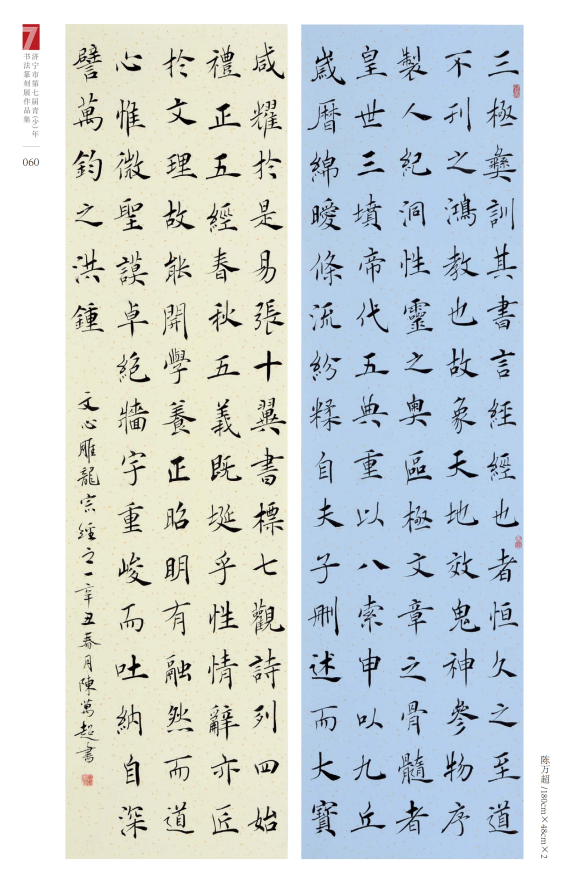 三極彝訓其書言經經也者恒久之至道
不刊之鴻教也故象天地效鬼神參物序
製人紀洞性靈之奥區極文章之骨髓者
皇世三墳帝代五典重以八索申以九丘
嵗暦綿曖條流紛糅自夫子刪述而大寳
咸耀於是易張十翼書標七觀詩列四始
禮正五經春秋五義既埏乎性情辭亦匠
於文理故能開學養正昭明有融然而道
心惟微聖謨卓絶牆宇重峻而吐納自深
譬萬鈞之洪鍾
文心雕龍宗經之一辛丑春月陳萬超書
7
济宁市第七届青(少)年
书法篆刻展作品集
060
陈万超/180cm×48cm×2